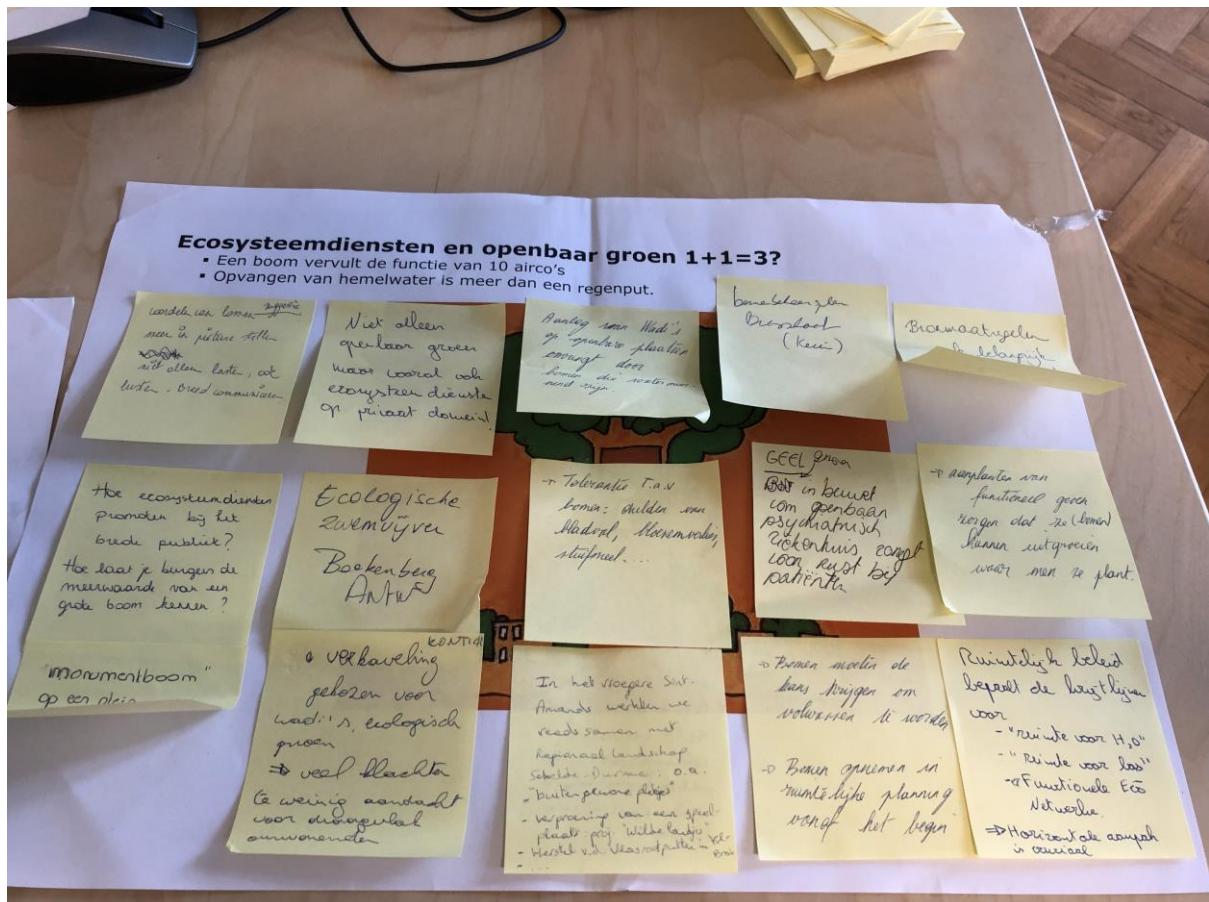 Ecosysteemdiensten en openbaar groen 1+1=3?
▪ Een boom vervult de functie van 10 airco's
▪ Opvangen van hemelwater is meer dan een regenput.
voordelen van bomen
meer in picture stellen
niet alleen lasten, ook
lusten. Breed communiceren
Niet alleen
openbaar groen
maar vooral ook
ecosysteem diensten
op privaat domein!
Aanleg van Wadi's
op openbare plaatsen
omringt door
bomen die
zijn.
bomenbeheersplan
Brasschaat
Bronmaatregelen
belangrijk
Hoe ecosysteemdiensten
promoten bij het
brede publiek?
Hoe laat je burgers de
meerwaarde van een
grote boom kennen?
Ecologische
zwemvijver
Boekenberg
Antw
→ Tolerantie t.a.v
bomen: dulden van
bladval, bloesemverlies,
stuifmeel...
GEEL groen
in buurt
van openbaar
psychiatrisch
ziekenhuis zorgt
voor rust bij
patiënten
→ aanplanten van
functioneel groen
zorgen dat ze (bomen)
kunnen uitgroeien
waar men ze plant.
"monumentboom"
op een plein
KONTICH
verkaveling
gekozen voor
wadi's, ecologisch
groen
⇒ veel klachten
te weinig aandacht
voor draagvlak
omwonenden
In het vroegere Sint-
Amands werkten we
reeds samen met
Regionaal Landschap
Schelde-Durme: o.a.
"buitengewone plekjes"
- vergroening van een speel-
plaats: proj. "Wilde
- Herstel v.d.
- ...
→ Bomen moeten de
kans krijgen om
volwassen te worden
→ Bomen opnemen in
ruimtelijke planning
vanaf het begin
Ruimtelijk beleid
bepaalt de krijtlijnen
voor
- "ruimte voor H₂O"
- "ruimte voor bos"
- Functionele Eco
Netwerken
⇒ Horizontale aanpak
is cruciaal